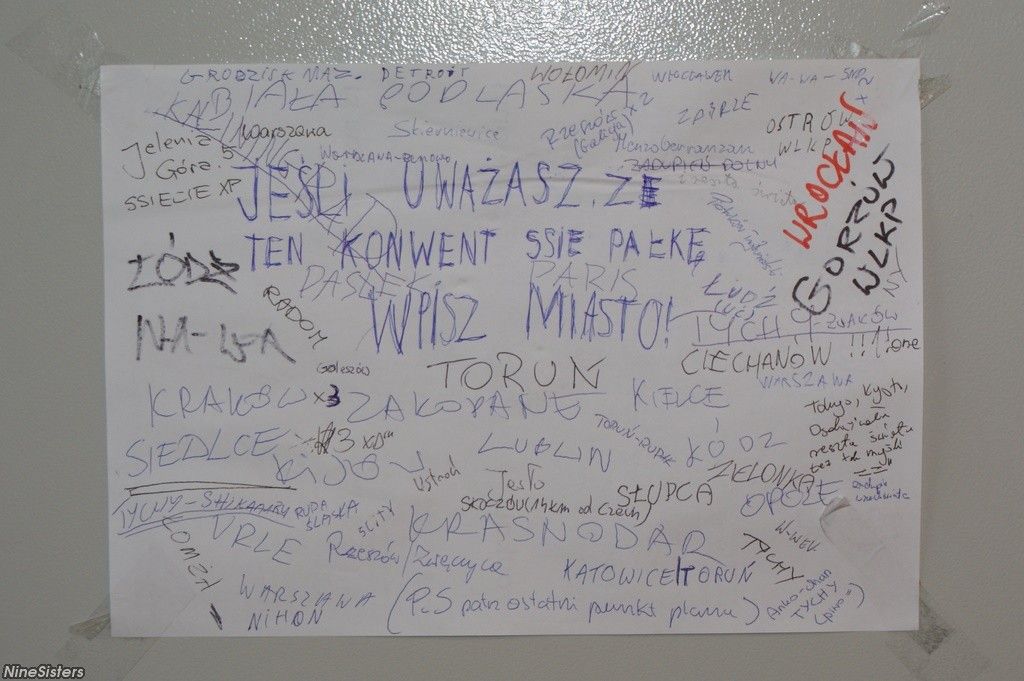 GRODZISK MAZ.
DETROIT
WOŁOMIN
WŁOCŁAWEK
BIAŁA PODLASKA
ZABRZE
Jelenia
Góra.
SSIECIE XP
Warszawa
Skierniewice
RZESZÓW x2
(Galicja)
OSTRÓW
WLKP
WROCŁAW
GORZÓW
WLKP
JEŚLI UWAŻASZ. ŻE
TEN KONWENT SSIE PAŁKĘ
WPISZ MIASTO!
ŁÓDŹ
PASŁĘK
PARIS
RADOM
WA-WA
ŁUDŹ
TYCHY
CIECHANÓW !!1!one
WARSZAWA
TORUŃ
Goleszów
KRAKÓW x3
ZAKOPANE
KIELCE
Tokyo, Kyoto,
reszta świata
też tak myśli
SIEDLCE
x3
KIJÓW
LUBLIN
TORUŃ-RUDAK
ŁÓDZ
Ustroń
Jasło
SKOCZÓW (14km od Czech)
SŁUPCA
ZIELONKA
OPOLE
TYCHY-SHIKAMARU
RUDA
ŚLĄSKA
URLE
ŁOMŻA
KRASNODAR
Rzeszów/Zwięczyca
KATOWICE/TORUŃ
TYCHY
W-WEK
WARSZAWA
NIHON
(P.S patrz ostatni punkt planu)
Anko-chan
TYCHY
NineSisters